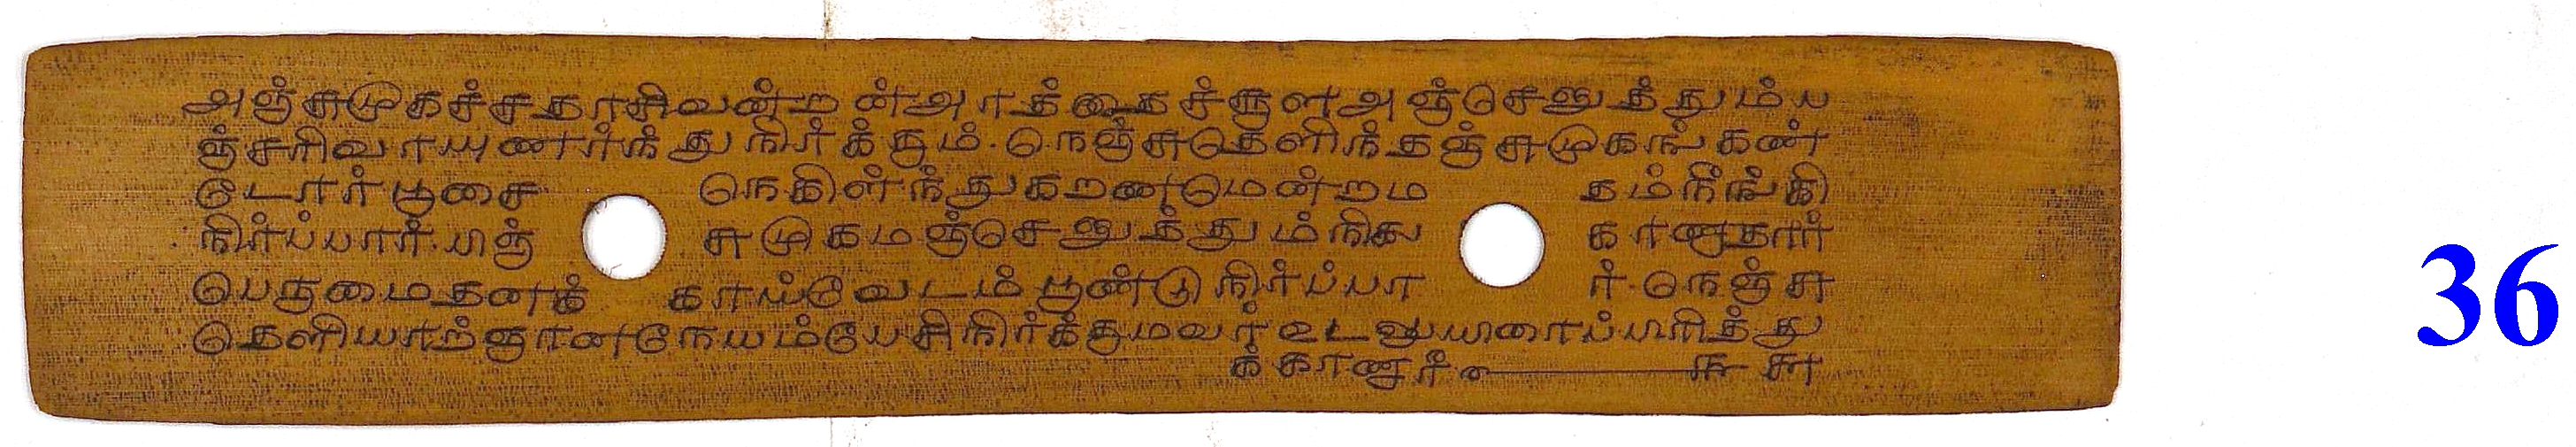 அஞ்சுமுகச்சதாசிவன்றன்அரத்தைச்சூளஅஞ்செளுத்தும்ப
ஞ்சரிவாயுணர்ந்துநிர்க்கும். நெஞ்சுதெளிந்தஞ்சுமுகங்கண்
டோர்பூசை நெகிள்ந்துகறணமென்றம தம்நீங்கி
நிர்ப்பார். பஞ் சுமுகமஞ்செளுத்தும்நிசு காணாதார்
பெருமைதனக் காய்வேடம்பூண்டுநிர்ப்பா ர். நெஞ்சு
தெளியார்ஞானநேயம்பேசிநிர்க்குமவர்உடலுயிரைப்பரித்து
க்காணார்
36